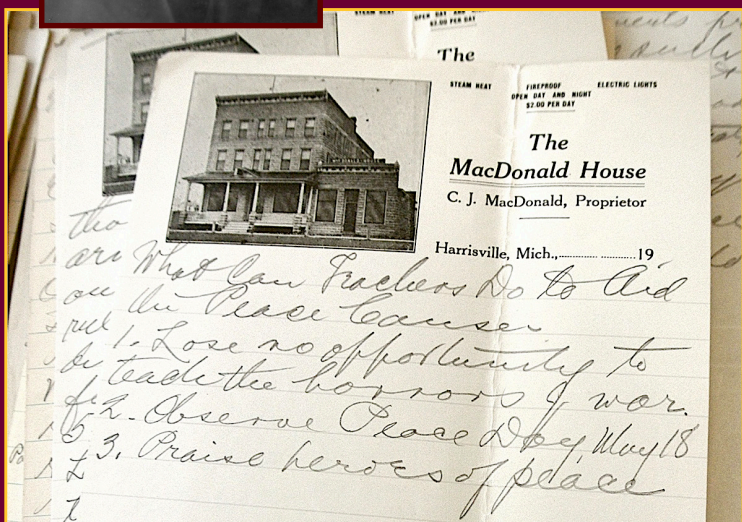 STEAM HEAT
OPEN DAY AND NIGHT
$2.00 PER DAY
The
STEAM HEAT FIREPROOF ELECTRIC LIGHTS
OPEN DAY AND NIGHT
$2.00 PER DAY
The
MacDonald House
C. J. MacDonald, Proprietor
Harrisville, Mich., 19
What Can Teachers Do to Aid
the Peace Cause
1. Lose no opportunity to
teach the horrors of war.
2. Observe Peace Day, May 18
3. Praise heroes of peace